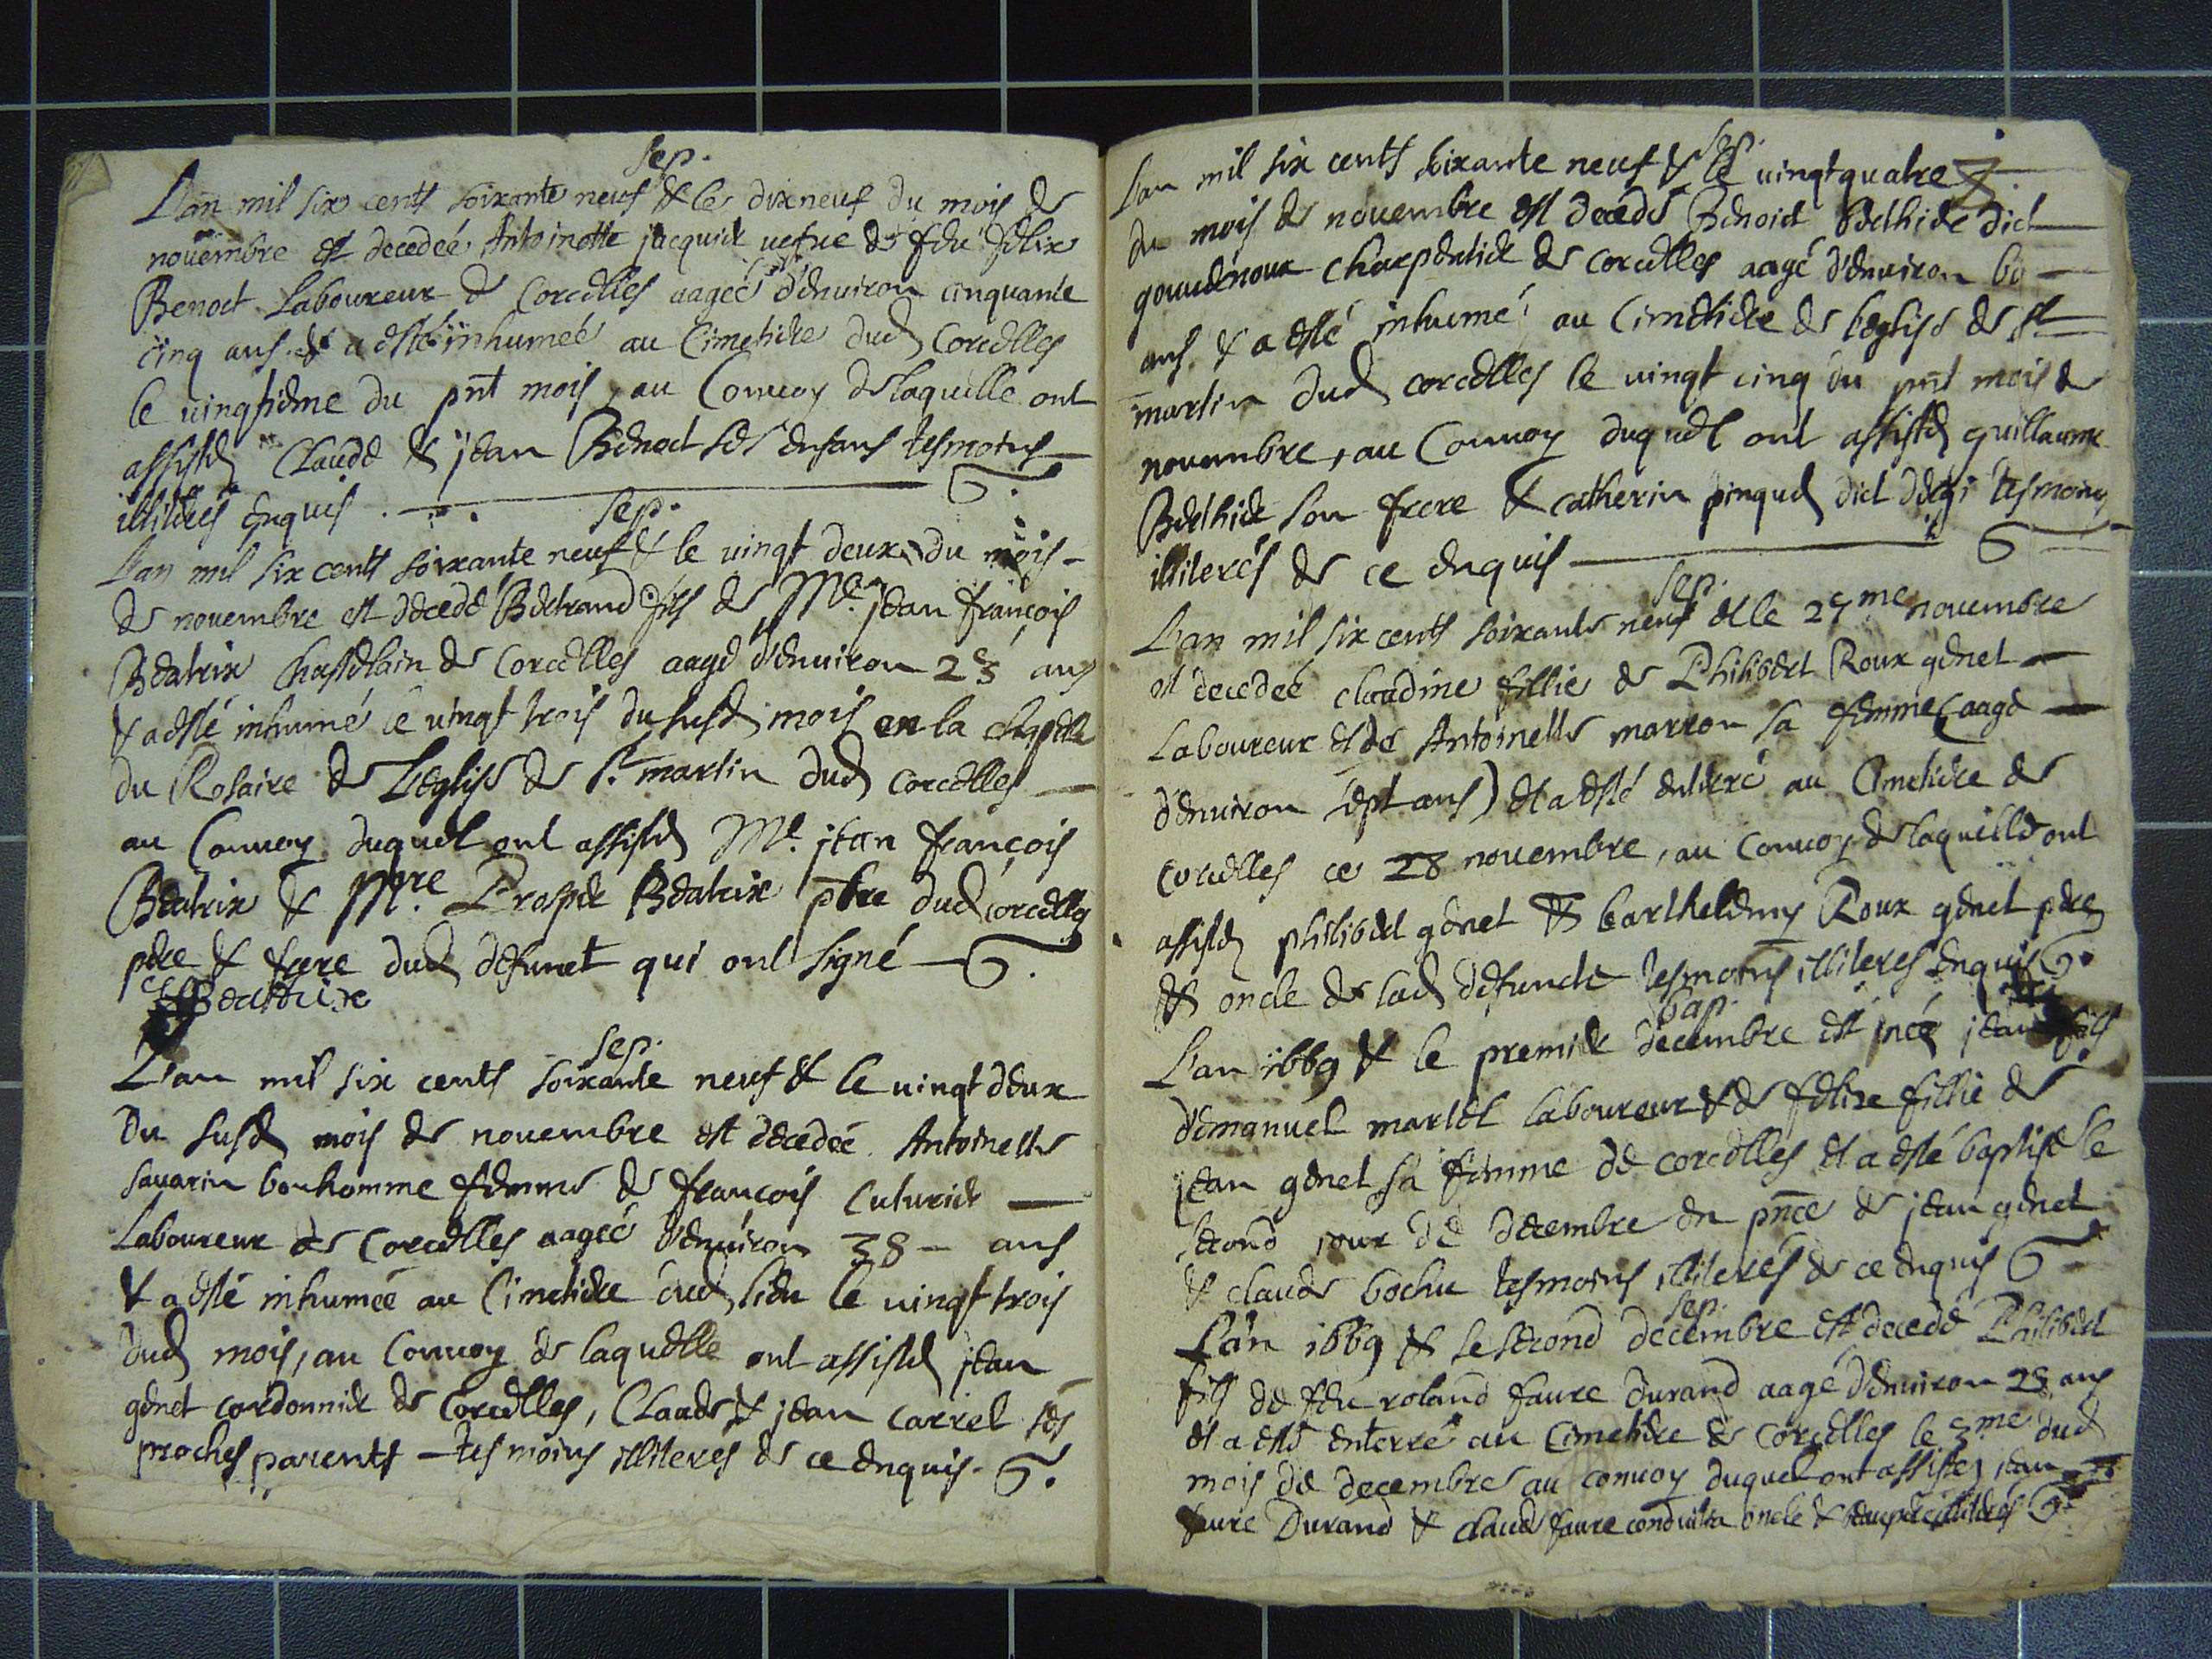 sep.
L'an mil six cents soixante neuf & le dixneuf du mois de
novembre est decedeé Antoinette jacquier vefue de feu felix
Benoct Laboureur de Corcelles aageé d'environ cinquante
cinq ans & a esté inhumeé au Cimetiere dud Corcelles
le vingtieme du pnt mois, au Convoy de laquelle ont
assisté Claude & jean Benoct ses enfans tesmoins
illiteres enquis
sep.
L'an mil six cents soixante neuf & le vingt deux du mois
de novembre est decedé Bertrand fils de Me. jean françois
Beatrix Chastelain de Corcelles aagé d'environ 23 ans
& a esté inhumé le vingt trois du susd mois en la chapelle
du Rosaire de L'eglise de St. martin dud corcelles
au Convoy duquel ont assisté Me. jean françois
Beatrix & Mre. Prosper Beatrix pbre dud corcelles
pere & frere dud defunct qui ont signé
Beatrix
sep.
L'an mil six cents soixante neuf & le vingt deux
du susd mois de novembre est decedeé Antoinette
savarin bonhomme femme de françois Cuturier
Laboureur de Corcelles aageé d'environ 38 ans
& a esté inhumeé au Cimetiere dud lieu le vingt trois
dud mois, au Convoy de laquelle ont assisté jean
genet cordonnier de Corcelles, Claude & jean carrel ses
proches parents tesmoins illiteres de ce enquis.
sep.
L'an mil six cents soixante neuf & le vingtquatre
du mois de novembre est decedé Benoict Berthier dict
gouvernour charpentier de corcelles aagé d'environ 60
ans & a esté inhumé au Cimetiere de leglise de st
martin dud corcelles le vingt cinq du pnt mois de
novembre, au Convoy duquel ont assisté guillaume
Berthier son frere & catherin pinqued dict tesmoins
illiterés de ce enquis
sep.
L'an mil six cents soixante neuf & le 27me novembre
est decedeé claudine fillie de Philibert Roux genet
Laboureur & de Antoinette marron sa femme (aagé
d'environ sept ans) et a esté enterré au Cimetiere de
corcelles ce 28 novembre, au convoy de laquelle ont
assisté philibert genet & barthelemy Roux genet pere
& oncle de lad defuncte tesmoins illiteres enquis
bap.
L'an 1669 & le premier decembre est neé jean fils
d'emanuel martel laboureur & de felize fillie de
jean genet sa femme de corcelles et a esté baptisé le
second jour de decembre en pnce de jean genet
& claude bochu tesmoins illiterés de ce enquis
sep.
L'an 1669 & le second decembre est decedé Philibert
fils de feu roland faure durand aagé d'environ 28 ans
et a esté enterré au Cimetiere de Corcelles le 3me dud
mois de decembre au convoy duquel ont assistez jean
faure Durand & claude faure oncle & beaupere illiterés